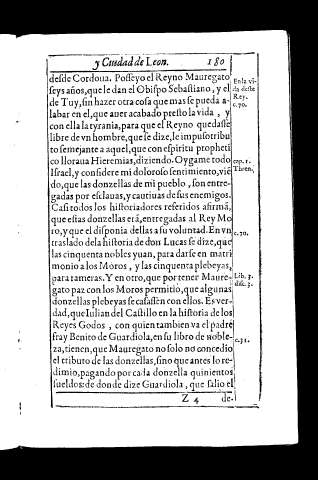 y Ciudad de Leon. 180
desde Cordoua. Posseyo el Reyno Mauregato
seys años, que le dan el Obispo Sebastiano, y el
de Tuy, sin hazer otra cosa que mas se pueda a-
labar en el, que auer acabado presto la vida, y
con ella la tyrania, para que el Reyno quedasse
libre de vn hombre, que le dize, le impuso tribu
to semejante a aquel, que con espiritu propheti
co lloraua Hieremias, diziendo. Oygame todo
Israel, y considere mi doloroso sentimiento, viẽ
do, que las donzellas de mi pueblo, son entre-
gadas por esclauas, y cautiuas de sus enemigos.
Casi todos los historiadores referidos afirmã,
que estas donzellas erã, entregadas al Rey Mo
ro, y que el disponia dellas a su voluntad. En vn
traslado de la historia de don Lucas se dize, que
las cinquenta nobles yuan, para darse en matri
monio a los Moros, y las cinquenta plebeyas,
para rameras. Y en otro, que por tener Maure-
gato paz con los Moros permitió, que algunas
donzellas plebeyas se casassen con ellos. Es ver-
dad, que Iulian del Castillo en la historia de los
Reyes Godos, con quien tambien va el padre
fray Benito de Guardiola, en su libro de noble-
za, tienen, que Mauregato no solo no concedio
el tributo de las donzellas, sino que antes lo re-
dimio, pagando por cada donzella quinientos
sueldos: de donde dize Guardiola, que salio el
Z 4 de-
En la vi-
da deste
Rey.
c.70.
cap. 1.
Thren.
c.70.
Lib. 3.
disc. 3.
c.31.